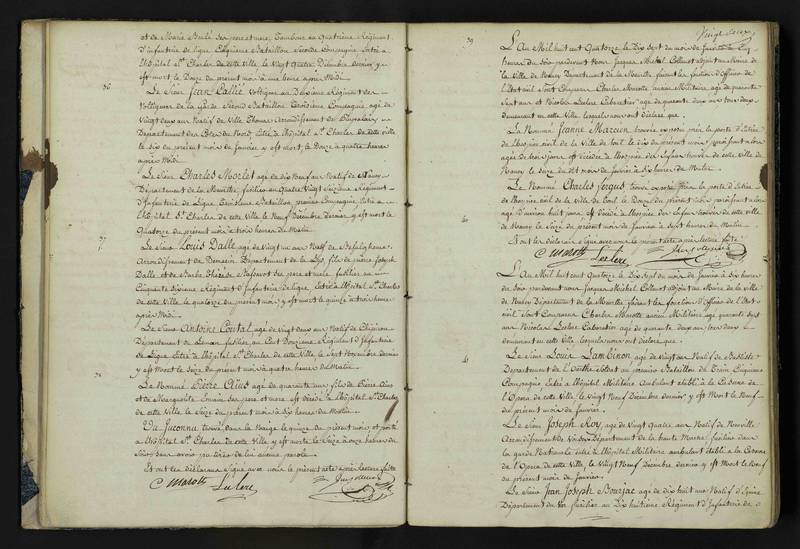 et de Marie Brulé ses pere et mere, Tambour au Quatrième Régiment
d'Infanterie de ligne Cinquieme Bataillon Seconde Compagnie Entré à
l'hôpital St Charles de cette Ville le Vingt quatre Décembre dernier y
est mort le Douze du présent mois à une heure après Midi
36
Le Sieur Jean Callie Voltigeur au Deuxieme Régiment des
Voltigeurs de la Second Bataillon Troisieme Compagnie, agé de
Vingt deux ans Natif de Arrondissement de
Département des Côtes du Nord, Entré à l'hôpital St Charles de cette ville
le dix du présent mois de Janvier y est mort, le Douze à quatre heures
après Midi
Le Sieur Charles Morlet agé de dix Neuf ans Natif de
Département de la Meurthe, fusilier au Quatre Vingt Seizieme Régiment
d'Infanterie de Ligne Bataillon, premiere Compagnie, Entré à
l'hôpital St Charles de cette Ville le Neuf Décembre dernier y est mort le
Quatorze du présent mois à trois heures du Matin
37
Le Sieur Louis Dalle agé de Vingt un ans Natif de
Arrondissement de Département de la Lys, fils de pierre Joseph
Dalle et de Barbe Thérèse ses pere et mere fusilier au
Cinquante Sixieme Régiment d'Infanterie de ligne, Entré à l'hôpital St Charles
de cette ville, le quatorze du présent mois y est mort le quinze à trois heures
après Midi
Le Sieur Antoine agé de vingt deux ans Natif de
Département de fusilier au Cent Douzieme Régiment d'Infanterie
de Ligne, Entré à l'hôpital St Charles de cette Ville, le Sept Novembre dernier
y est Mort le Seize du présent mois à quatre heures du Matin
38
Le Nommé Pierre Cuis agé de quarante ans fils de Pierre Cuis
et de Margueritte ses pere et mere est décédé à l'hôpital St Charles
de cette ville, le Seize du présent mois à dix heures du Matin
Un Inconnu trouvé dans la Neige le quinze du présent mois, et porté
à l'hôpital St Charles de cette Ville y est morte le Seize à onze heures du
Soir, sans avoir pu tirer de lui aucune parole
Et ont les déclarans Signé avec nous le présent acte après lecture faite
C Marotte Leclerc
Vingt deux
39
L'An Mil huit cent Quatorze le Dix Sept du mois de Janvier à
heures du soir pardevant Nous Jacques Michel Collenot adjoint au Maire de
la Ville de Nancy Département de la Meurthe faisant les fonctions d'Officier de
l'Etat civil Sont Comparus Charles Marotte ancien Militaire agé de quarante
Sept ans et Nicolas Leclerc Cabaretier agé de quarante deux ans tous deux
demeurant en cette Ville lesquels nous ont déclaré que
La Nommée Jeanne Marcein trouvée exposée près la porte d'Entrée
de l'hospice civil de la Ville de Toul le dix du présent mois, paroissant alors
agée de trois jours est décédée à l'hospice des Enfans trouvés de cette ville de
Nancy le Seize du dit mois de Janvier à dix heures du Matin
Le Nommé Charles Fergus trouvé exposé près la porte d'Entrée
de l'hospice civil de la Ville de Toul le Douze du présent mois paroissant alors
agé d'environ huit jours est décédé à l'hospice des Enfans trouvés de cette ville
de Nancy, le Seize du présent mois de Janvier à sept heures du Matin
Et ont les déclarans Signé avec nous le présent acte après lecture faite
C Marotte Leclerc
60
L'An Mil huit cent Quatorze le Dix Sept du mois de Janvier à dix heures
du soir pardevant nous Jacques Michel Collenot adjoint au Maire de la ville
de Nancy Département de la Meurthe faisant les fonctions d'Officier de l'Etat
civil Sont Comparus Charles Marotte ancien Militaire agé quarante sept
ans et Nicolas Leclerc Cabaretier agé de quarante deux ans tous deux
demeurant en cette Ville lesquels nous ont déclaré que
61
Le Sieur Louis Lambinon agé de Vingt ans Natif de
Département de l'Ourthe Soldat au premier Bataillon du Train Cinquieme
Compagnie, Entré à l'hôpital Militaire ambulant établi à la Caserne de
l'Opera de cette Ville, le Vingt Neuf Décembre dernier y est Mort le Neuf
du présent mois de Janvier
Le Sieur Joseph Roy, agé de Vingt Quatre ans Natif de Neuville
Arrondissement de Département de la haute Marne, fusilier dans
la garde Nationale, Entré à l'hôpital Militaire ambulant établi à la Caserne
de l'Opera de cette Ville, le Vingt Neuf Décembre dernier y est Mort le Neuf
du présent mois de Janvier
Le Sieur Jean Joseph Bourjac agé de dix huit ans Natif d'
Département du Var fusilier au Dix huitieme Régiment d'Infanterie de